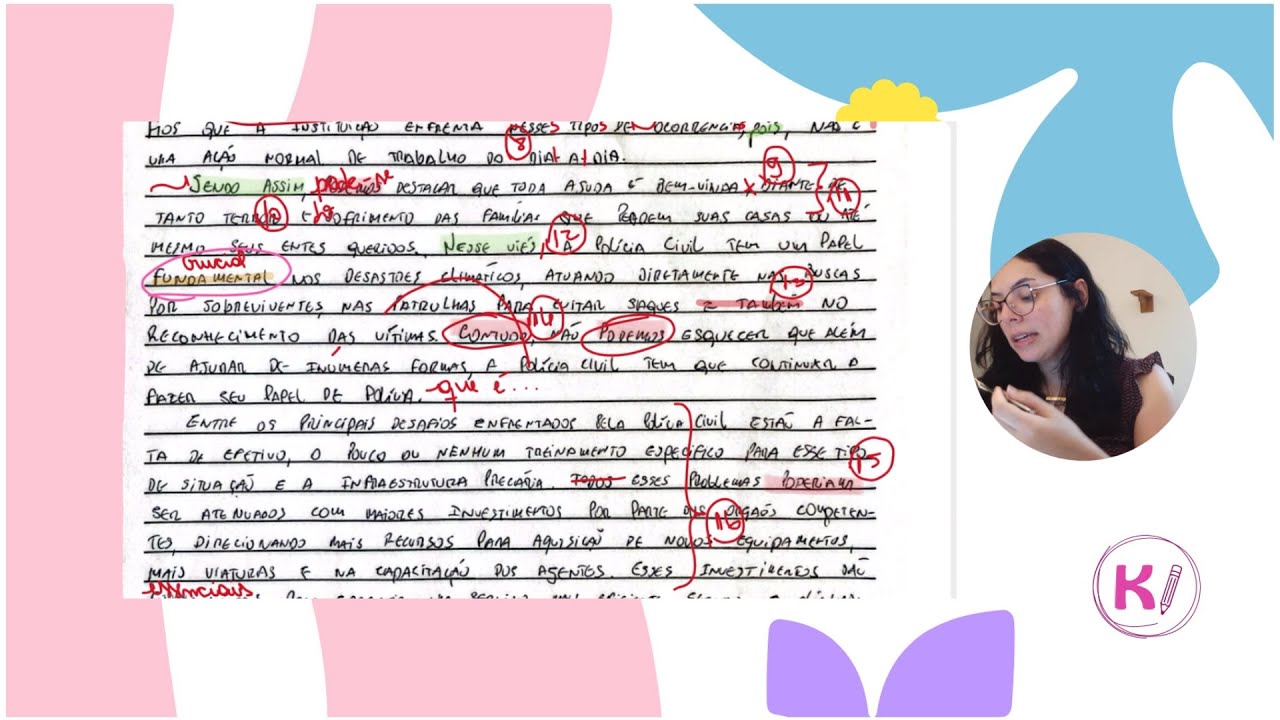 MOS QUE A INSTITUIÇÃO ENFRENTA NESSES TIPOS DE OCORRENCIAS, POIS, NÃO É
8
UMA AÇÃO NORMAL DE TRABALHO DO DIA A DIA.
9
SENDO ASSIM, pode-se DESTACAR QUE TODA AJUDA É BEM-VINDA DIANTE DE
TANTO TERROR E SOFRIMENTO DAS FAMÍLIAS QUE PERDEM SUAS CASAS OU ATÉ
MESMO SEUS ENTES QUERIDOS. NESSE VIÉS, A POLÍCIA CIVIL TEM UM PAPEL
12
crucial
FUNDAMENTAL NOS DESASTRES CLIMÁTICOS, ATUANDO DIRETAMENTE NAS BUSCAS
13
POR SOBREVIVENTES, NAS PATRULHAS PARA EVITAR SAQUES E TAMBÉM NO
14
RECONHECIMENTO DAS VÍTIMAS. CONTUDO, NÃO PODEMOS ESQUECER QUE ALÉM
DE AJUDAR DE INÚMERAS FORMAS, A POLÍCIA CIVIL TEM QUE CONTINUAR A
FAZER SEU PAPEL DE POLÍCIA. que é...
ENTRE OS PRINCIPAIS DESAFIOS ENFRENTADOS PELA POLÍCIA CIVIL ESTÃO A FAL-
TA DE EFETIVO, O POUCO OU NENHUM TREINAMENTO ESPECÍFICO PARA ESSE TIPO
15
DE SITUAÇÃO E A INFRAESTRUTURA PRECÁRIA. TODOS ESSES PROBLEMAS PODERIAM
SER ATENUADOS COM MAIORES INVESTIMENTOS POR PARTE DOS ORGÃOS COMPETEN-
16
TES, DIRECIONANDO MAIS RECURSOS PARA AQUISIÇÃO DE NOVOS EQUIPAMENTOS,
MAIS VIATURAS E NA CAPACITAÇÃO DOS AGENTES. ESSES INVESTIMENTOS SÃO
essenciais
K